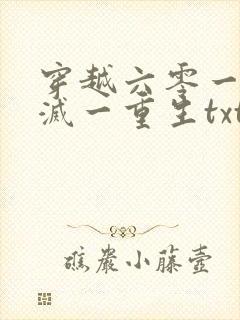 穿越六零一
滅一重生txt
礁巖小藤壺